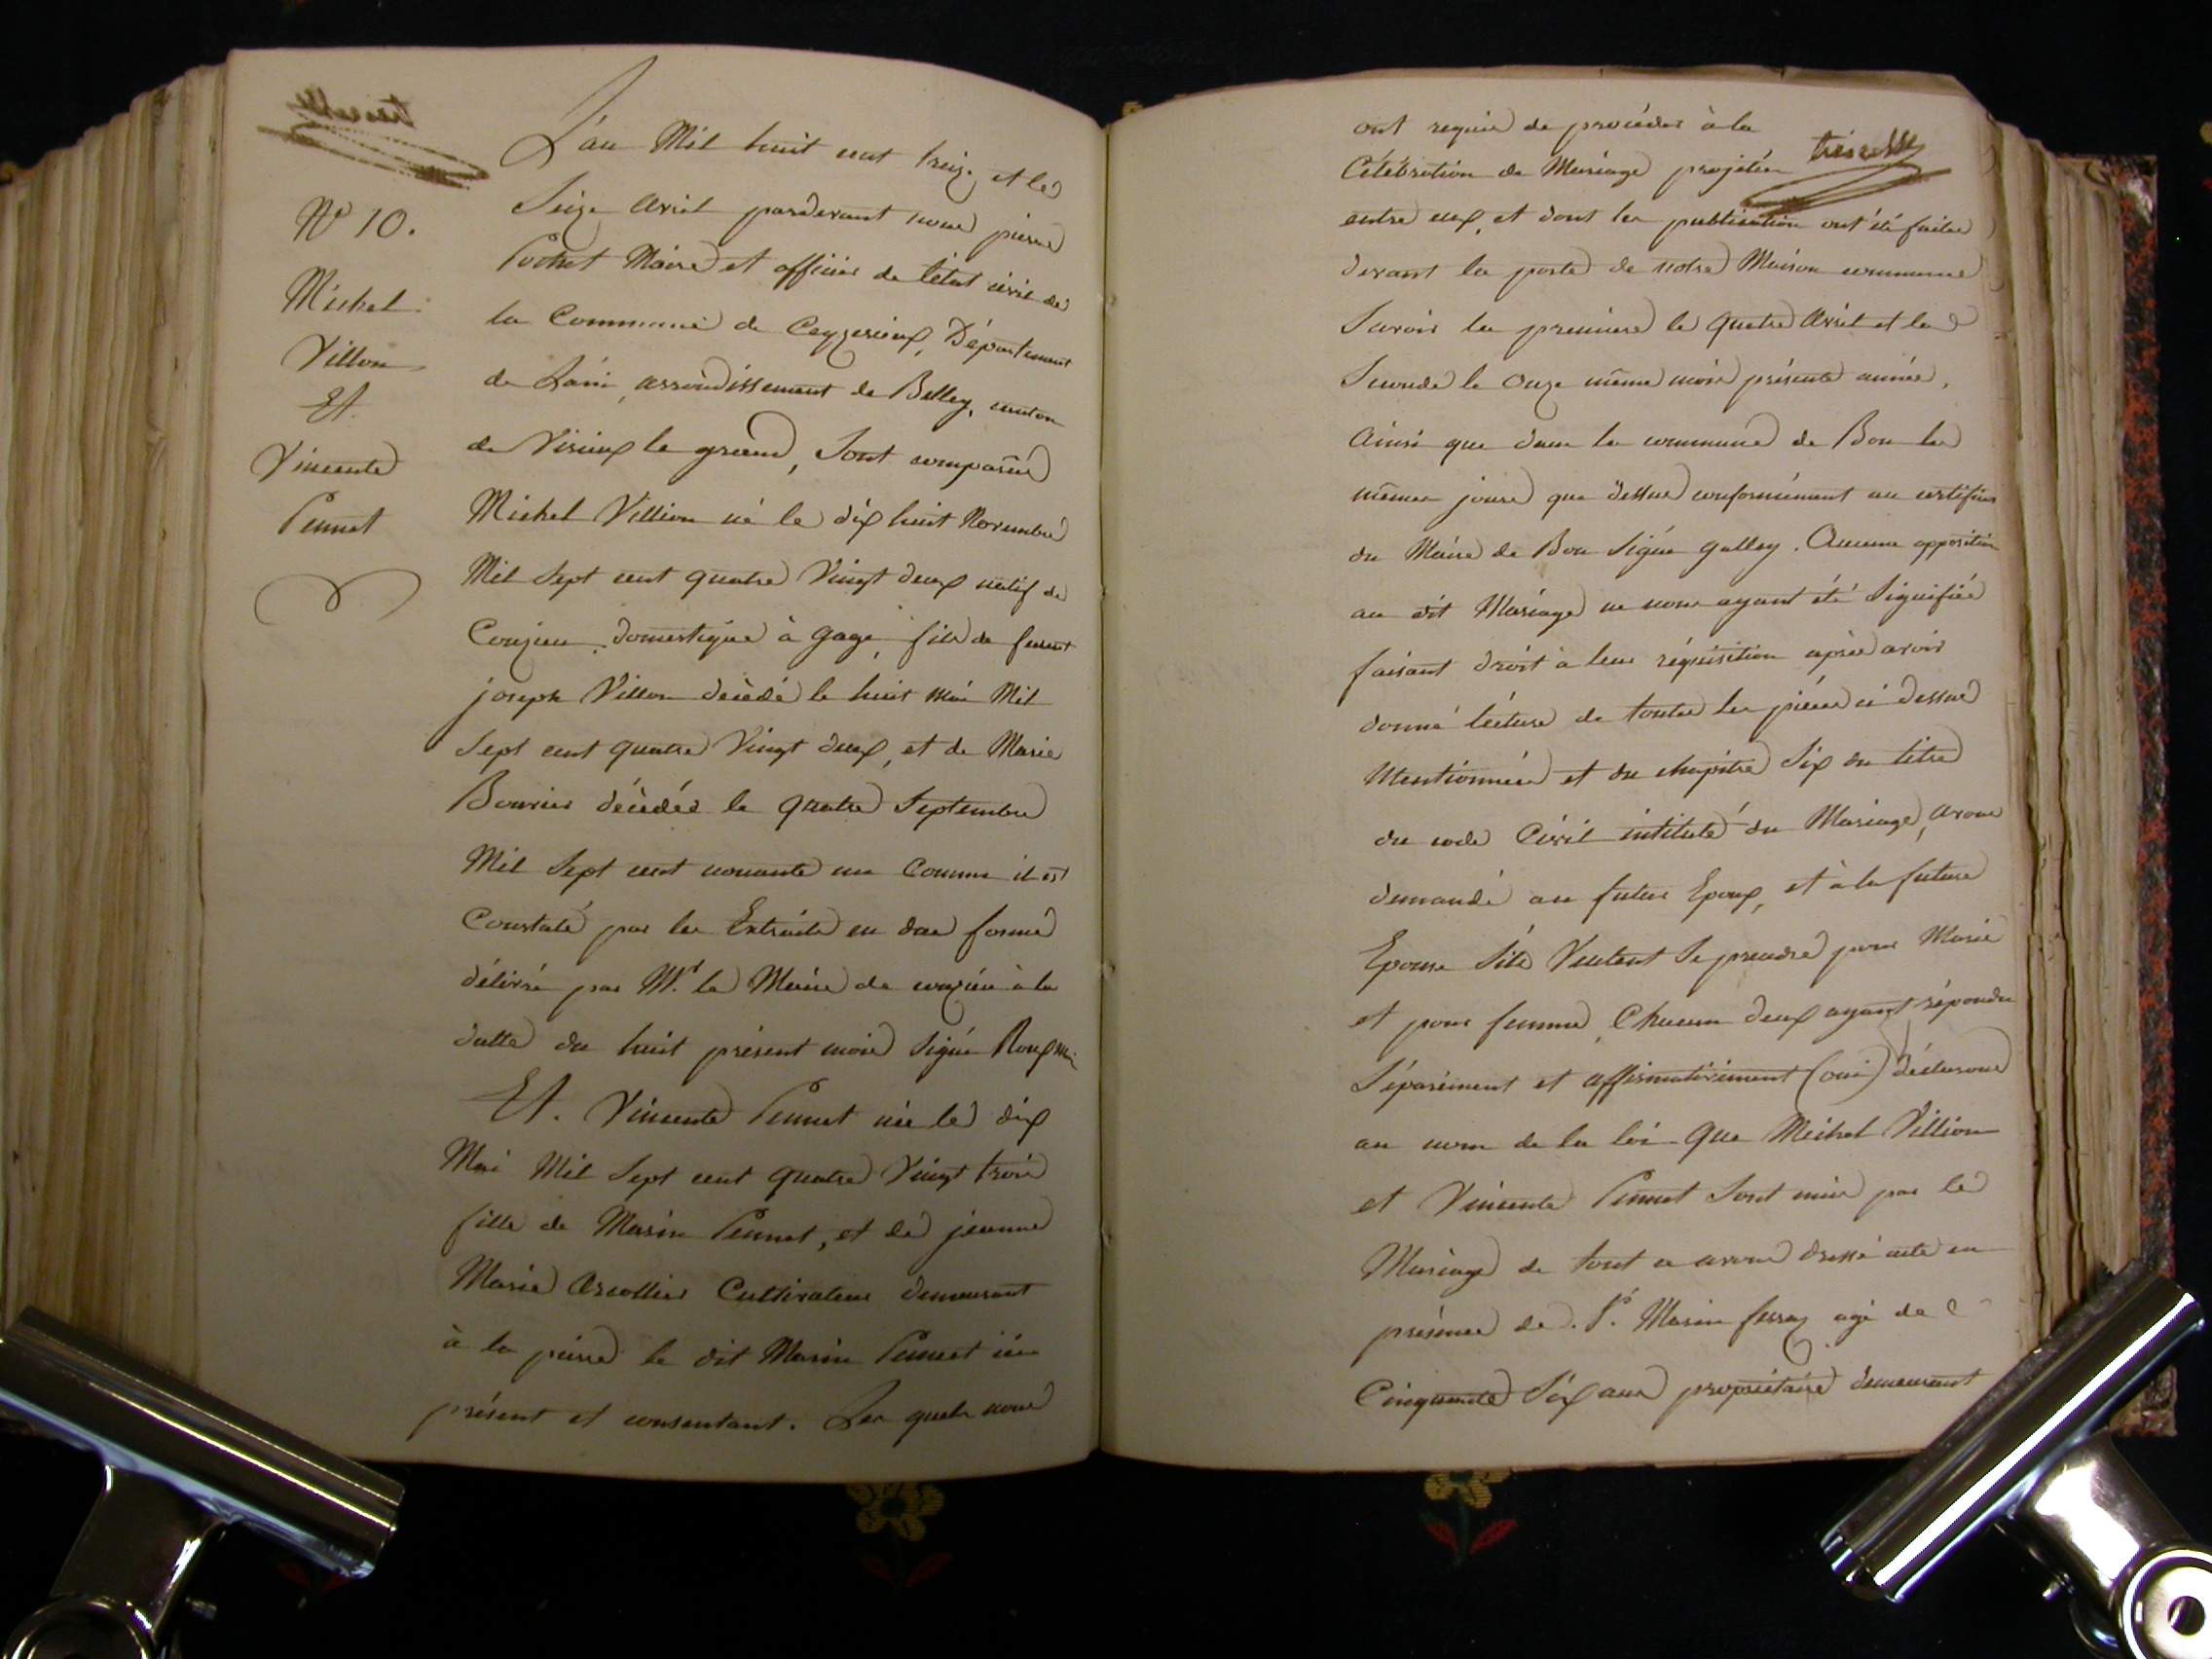 N° 10.
Michel
Villon
Et
Vincente
Pennet
L'an Mil huit cent treize et le
Seize avril pardevant nous pierre
Pochet Maire et officier de l'état civil de
la Commune de Ceyzerieux, Département
de Lain, arrondissement de Belley, canton
de Virieux le grand, Sont comparus
Michel Villion né le dix huit Novembre
Mil Sept cent quatre Vingt deux natif de
Conzieu, domestique à gage, fils de feu
joseph Villon décédé le huit mai Mil
Sept cent quatre Vingt deux, et de Marie
Bouvier décédée le quatre Septembre
Mil Sept cent nonante un Comme il est
Constaté par les Extraits en due forme
délivré par Mr. le Maire de conzieu à la
datte du huit présent mois Signé Roux
Et. Vincente Pennet née le dix
Mai Mil Sept cent quatre Vingt trois
fille de Marin Pennet, et de jeanne
Marie Cultivateur demeurant
à la le dit Marin Pennet ici
présent et consentant. Les quels nous
ont requis de procéder à la
Célébration de Mariage projetée
entre eux, et dont les publication ont été faites
devant la porte de notre Maison commune
Savoir la premiere le quatre Avril et la
Seconde le Onze même mois présente année,
Ainsi que dans la commune de Bon les
mêmes jours que dessus conformément au certificat
du Maire de Bon Signé galley. Aucune opposition
au dit Mariage ne nous ayant été Signifiée
faisant droit à leur réquisition après avoir
donné lécture de toutes les pièces ci dessus
Mentionnées et du chapitre Six du titre
du code Civil intitulé du Mariage, avons
demandé au futur Epoux, et à la future
Epouse S'ils Veulent Se prendre pour Marie
et pour femme, Chacun deux ayant répondu
Séparément et affirmativement (oui) déclarons
au nom de la loi que Michel Villion
et Vincente Pennet Sont unis par le
Mariage de tout a avons dressé acte en
présence de. Sr. Marin ferraz agé de
Cinquante Six ans propriétaire demeurant